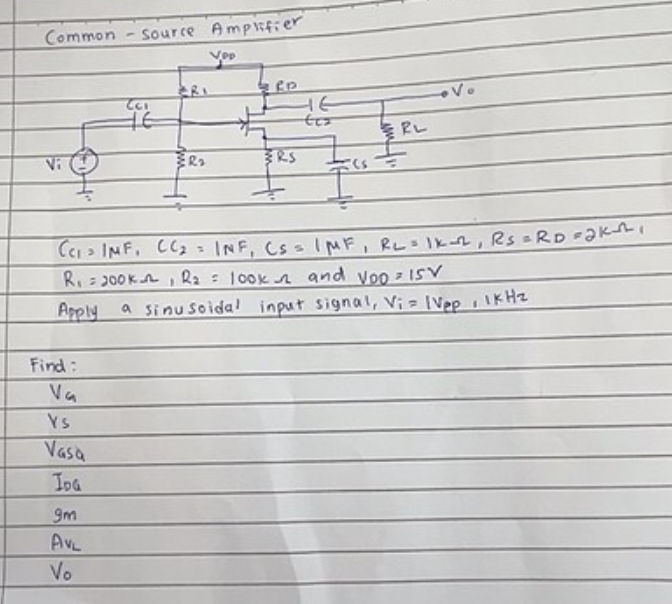 Common - Source Amplifier
VDD
R1 RD
CC1 CC2 Vo
RL
Vi R2 RS CS
CC1 = 1MF, CC2 = 1MF, CS = 1MF, RL = 1KΩ, RS = RD = 2KΩ,
R1 = 200KΩ, R2 = 100KΩ and VDD = 15V
Apply a sinusoidal input signal, Vi = 1Vpp, 1KHz
Find:
VG
VS
VGSQ
IDQ
gm
AVL
Vo